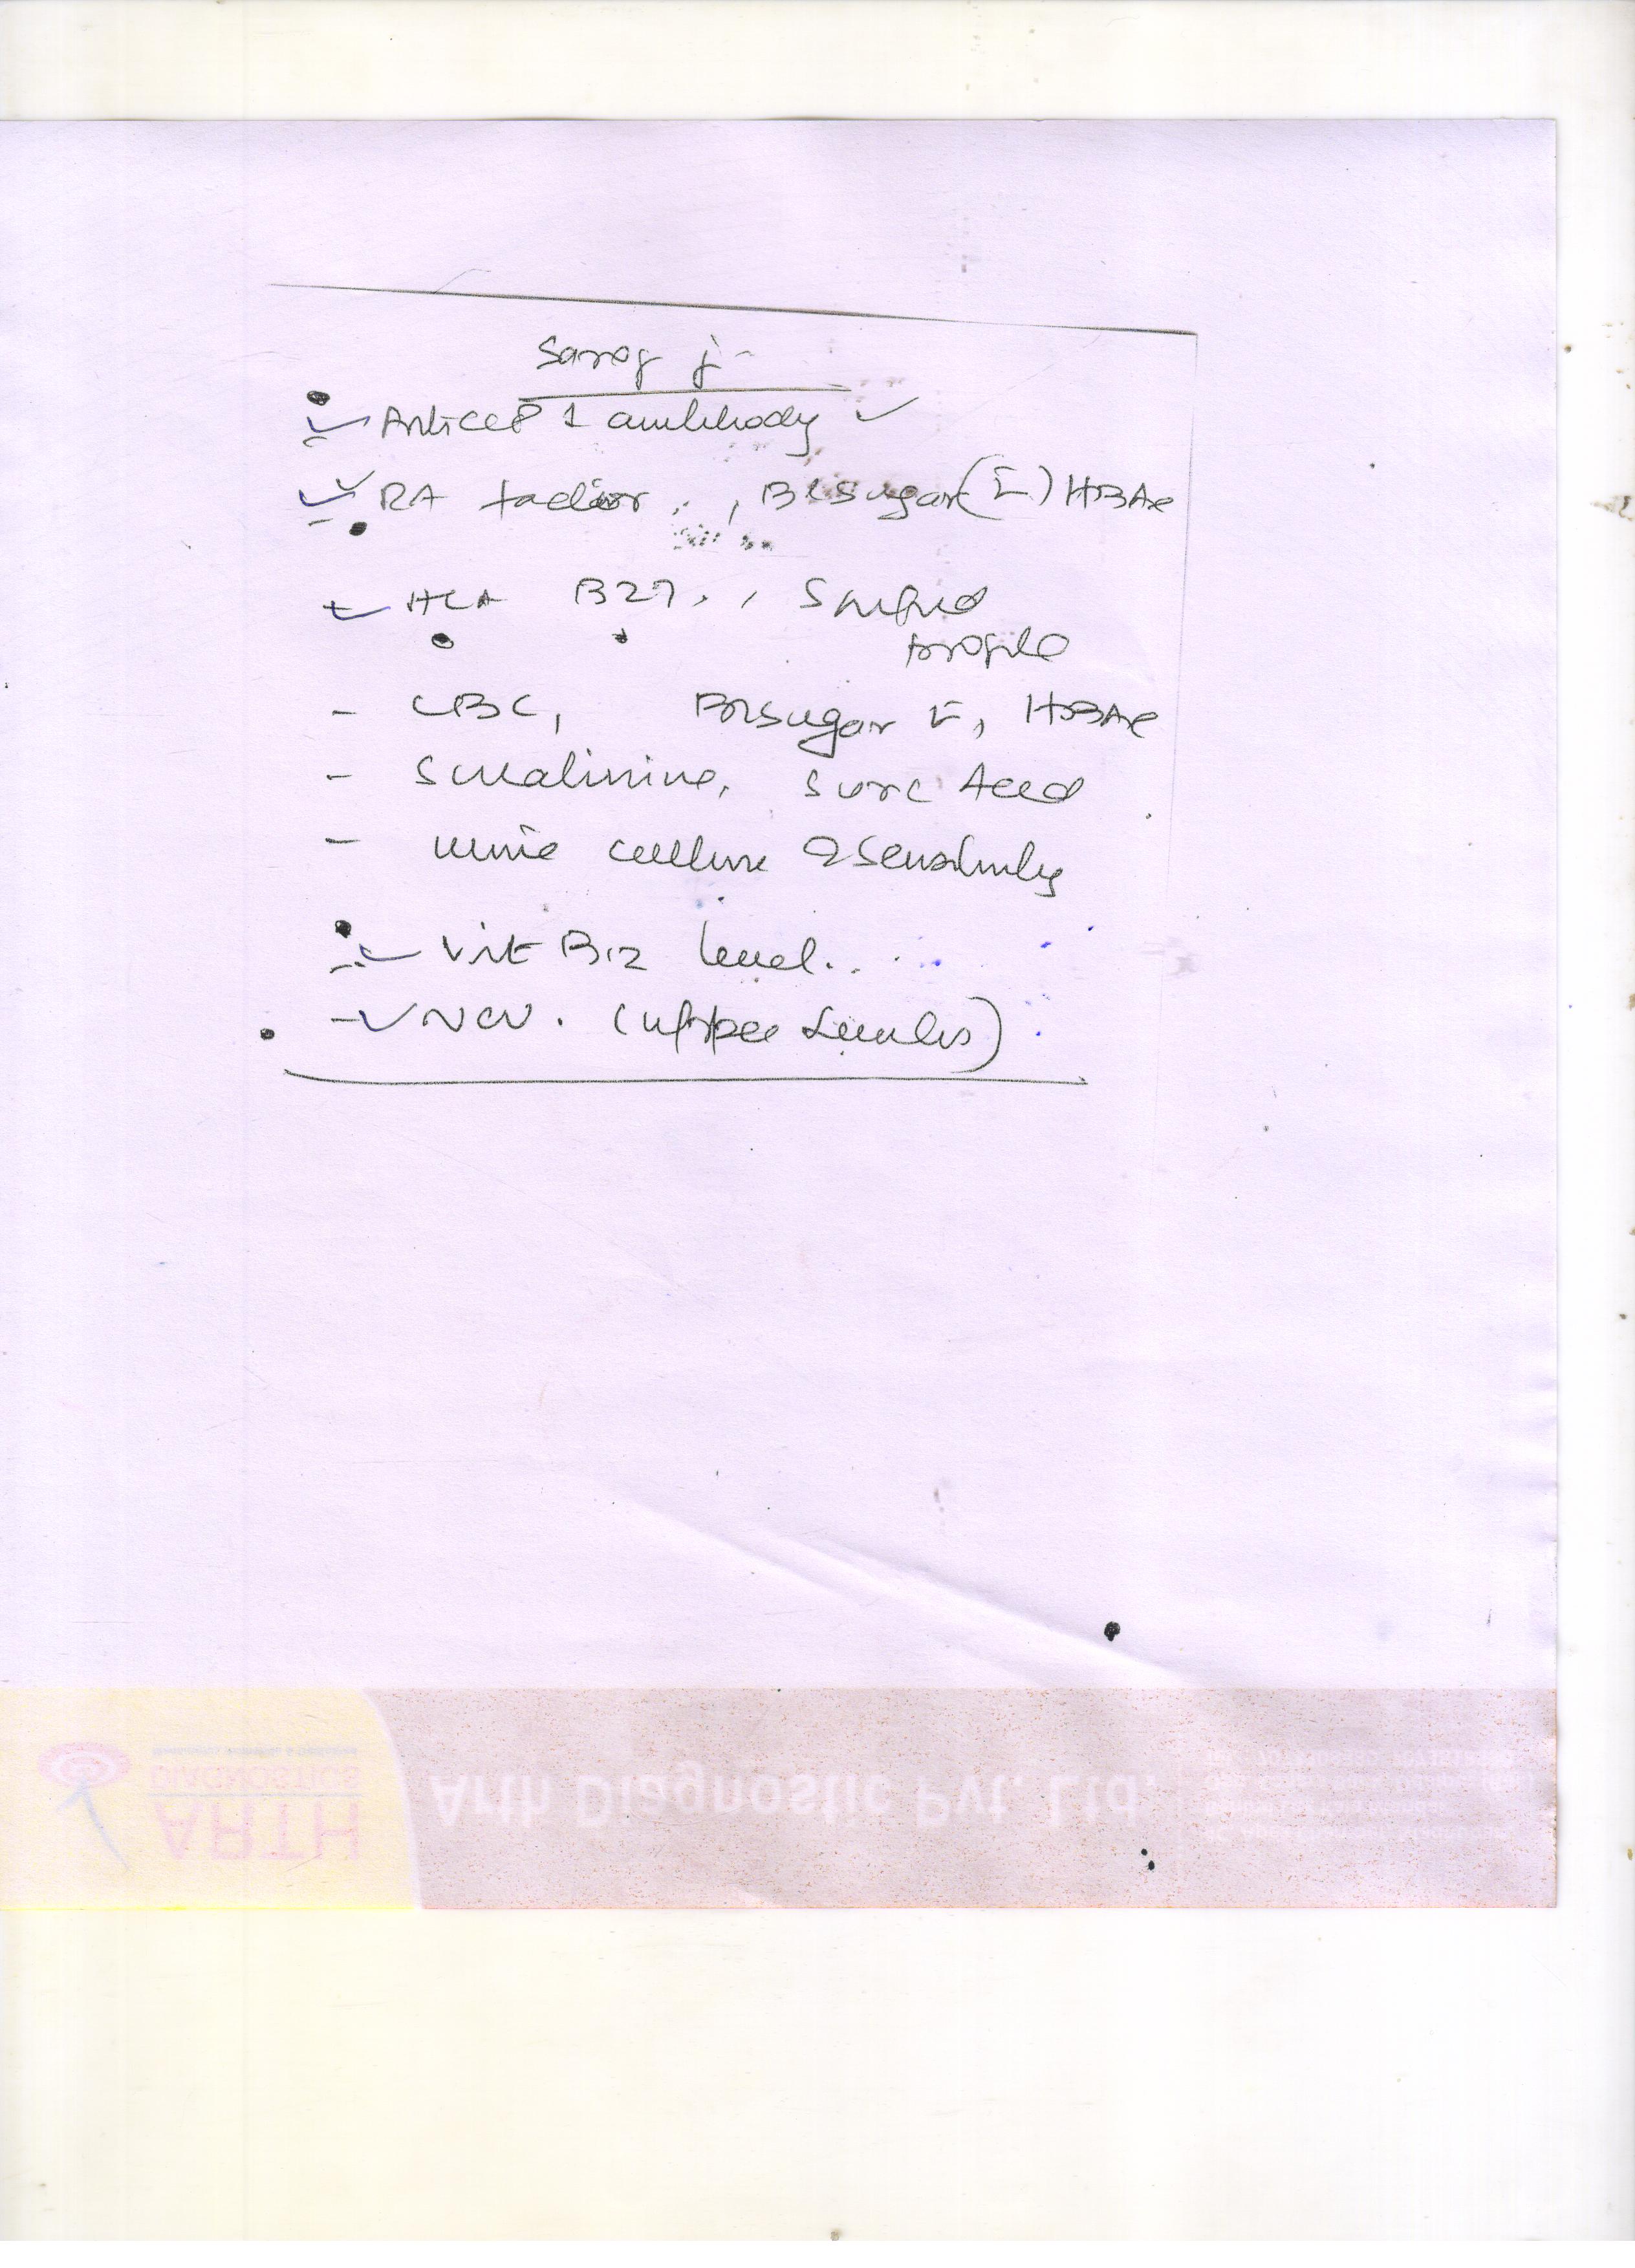 Saroj ji
Anti CCP 1 antibody
RA factor, Bl sugar (F) HBAc
HLA B27, S Lipid
profile
CBC, Bl sugar F, HBAc
S creatinine, S uric Acid
urine culture & sensitivity
Vit B12 level..
NCV. (upper Limbs)
ARTH
DIAGNOSTICS
Arth Diagnostic Pvt. Ltd.